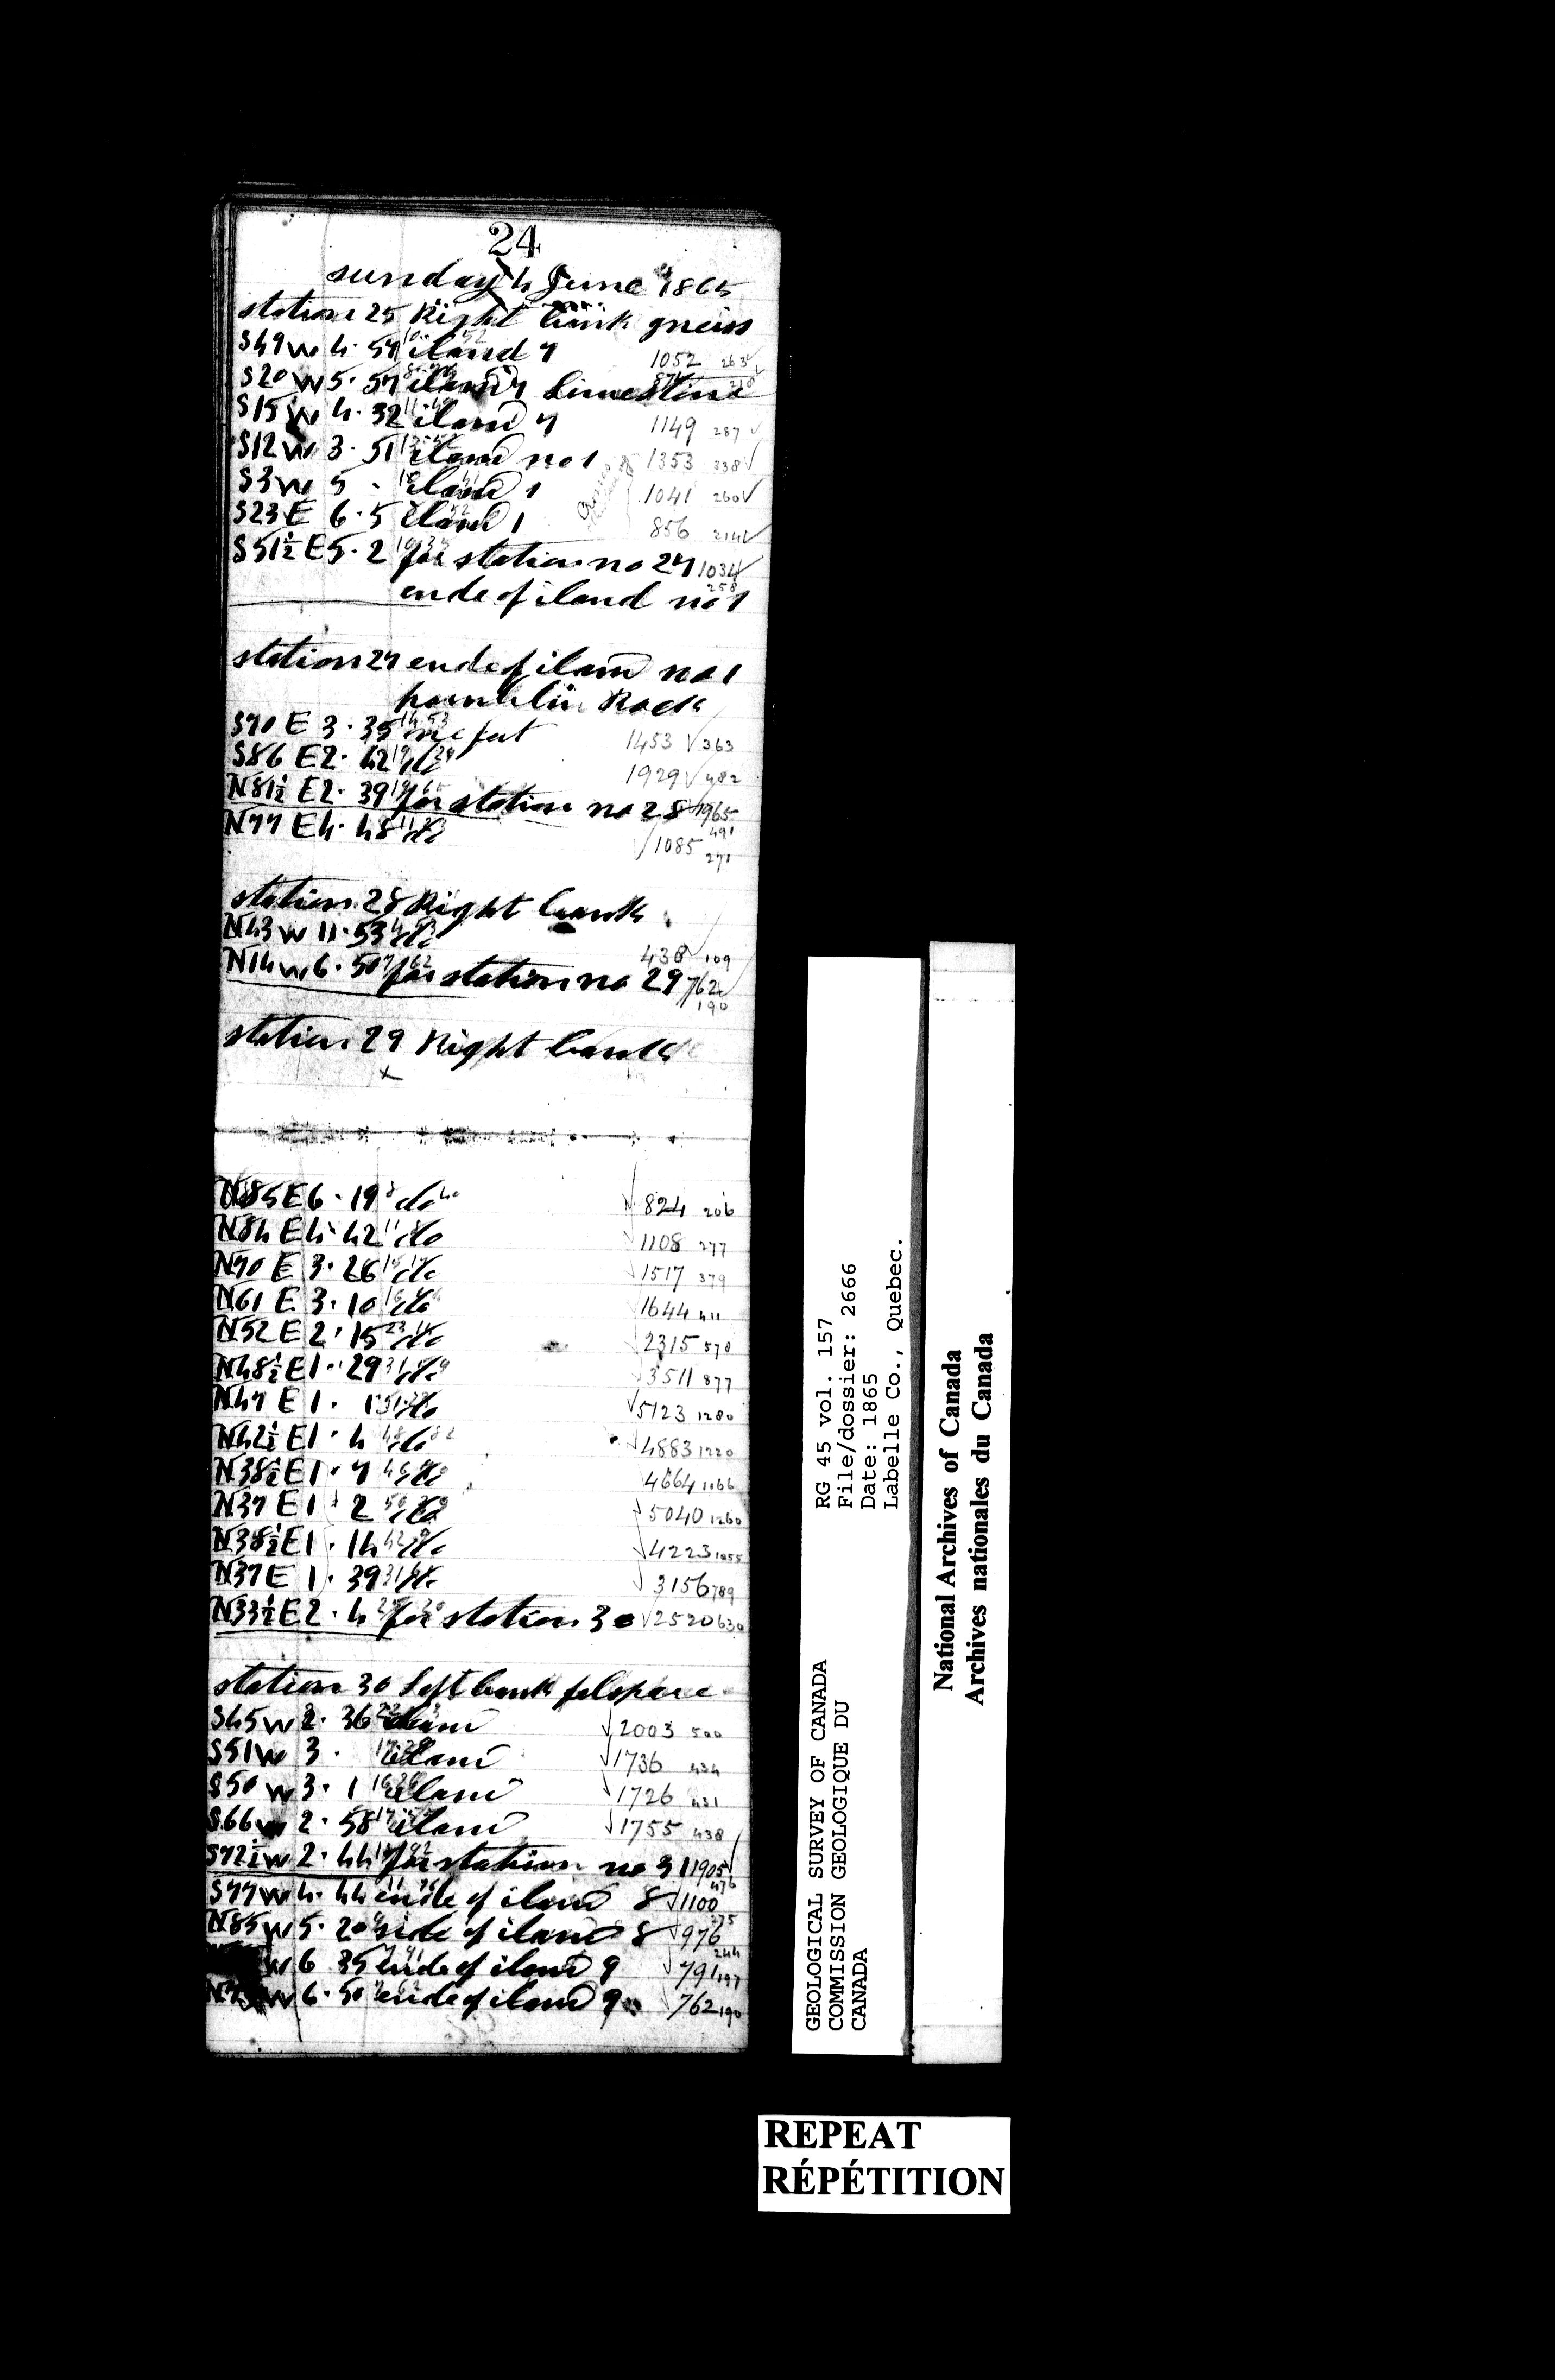 24
sunday 4 June 1865
station 25 Right bank gneiss
S49 W 4·57 iland 7 1052 263
S20 W 5·57 iland 7 limestone 874 218
S15 W 4·32 iland 7 1149 287
S12 W 3·51 iland no 1 1353 338
S3 W 5 · iland 1 1041 260
S23 E 6·5 iland 1 856 214
S51½ E 5·2 for station no 27 1034 258
ende of iland no 1
station 27 ende of iland no 1
Rock
S70 E 3·35 1453 363
S86 E 2·42 do 1929 482
N81½ E 2·39 for station no 28 1965 491
N77 E 4·48 do 1085 271
station 28 Right bank
N43 W 11·53 do 438 109
N14 W 6·50 for station no 29 762 190
station 29 Right bank
x
N85 E 6·19 do 824 206
N84 E 4·42 do 1108 277
N70 E 3·26 do 1517 379
N61 E 3·10 do 1644 411
N52 E 2·15 do 2315 578
N48½ E 1·29 do 3511 877
N47 E 1·1 do 5123 1280
N42½ E 1·4 do 4883 1220
N38½ E 1·7 do 4664 1166
N37 E 1·2 do 5040 1260
N38½ E 1·14 do 4223 1055
N37 E 1·39 do 3156 789
N33½ E 2·4 for station 30 2520 630
station 30 left bank felspare
S45 W 2·36 iland 2003 500
S51 W 3· iland 1736 434
S50 W 3·1 iland 1726 431
S66 W 2·58 iland 1755 438
S72½ W 2·44 for station no 31 1905 476
S77 W 4·44 ende of iland 8 1100 275
N85 W 5·20 side of iland 8 976 244
W 6 35 ende of iland 9 791 197
W 6·50 ende of iland 9 762 190
GEOLOGICAL SURVEY OF CANADA
COMMISSION GEOLOGIQUE DU
CANADA
RG 45 vol. 157
File/dossier: 2666
Date: 1865
Labelle Co., Quebec.
National Archives of Canada
Archives nationales du Canada
REPEAT
RÉPÉTITION